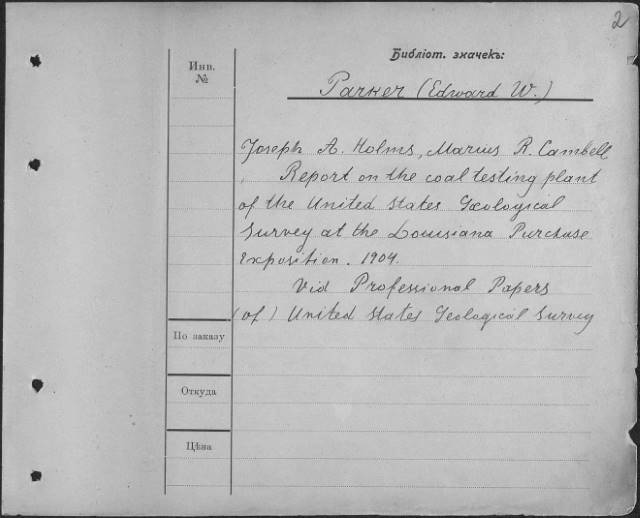 2
Библіот. значекъ:
Инв.
№
Parker (Edward W.)
Joseph A. Holms, Marius R. Cambell
. Report on the coal testing plant
of the United States Geological
Survey at the Louisiana Purchase
Exposition. 1904.
Vid Professional Papers
(of) United States Geological Survey
По заказу
Откуда
Цѣна